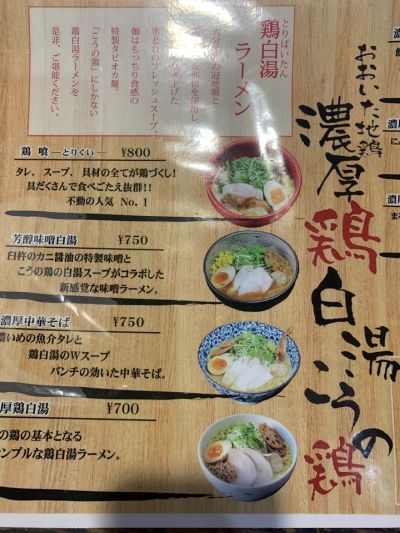 おおいた地鶏
濃厚鶏白湯
こうの鶏
とりぱいたん
鶏白湯
ラーメン
麺はもっちり食感の
特製タピオカ麺。
「こうの鶏」にしかない
鶏白湯ラーメンを
是非、ご堪能ください。
鶏 喰 ―とりくい― ¥800
タレ、スープ、具材の全てが鶏づくし!
具だくさんで食べごたえ抜群!!
不動の人気 No. 1
芳醇味噌白湯 ¥750
臼杵のカニ醤油の特製味噌と
こうの鶏の白湯スープがコラボした
新感覚な味噌ラーメン。
濃厚中華そば ¥750
濃いめの魚介タレと
鶏白湯のWスープ
パンチの効いた中華そば。
厚鶏白湯 ¥700
の鶏の基本となる
ンプルな鶏白湯ラーメン。